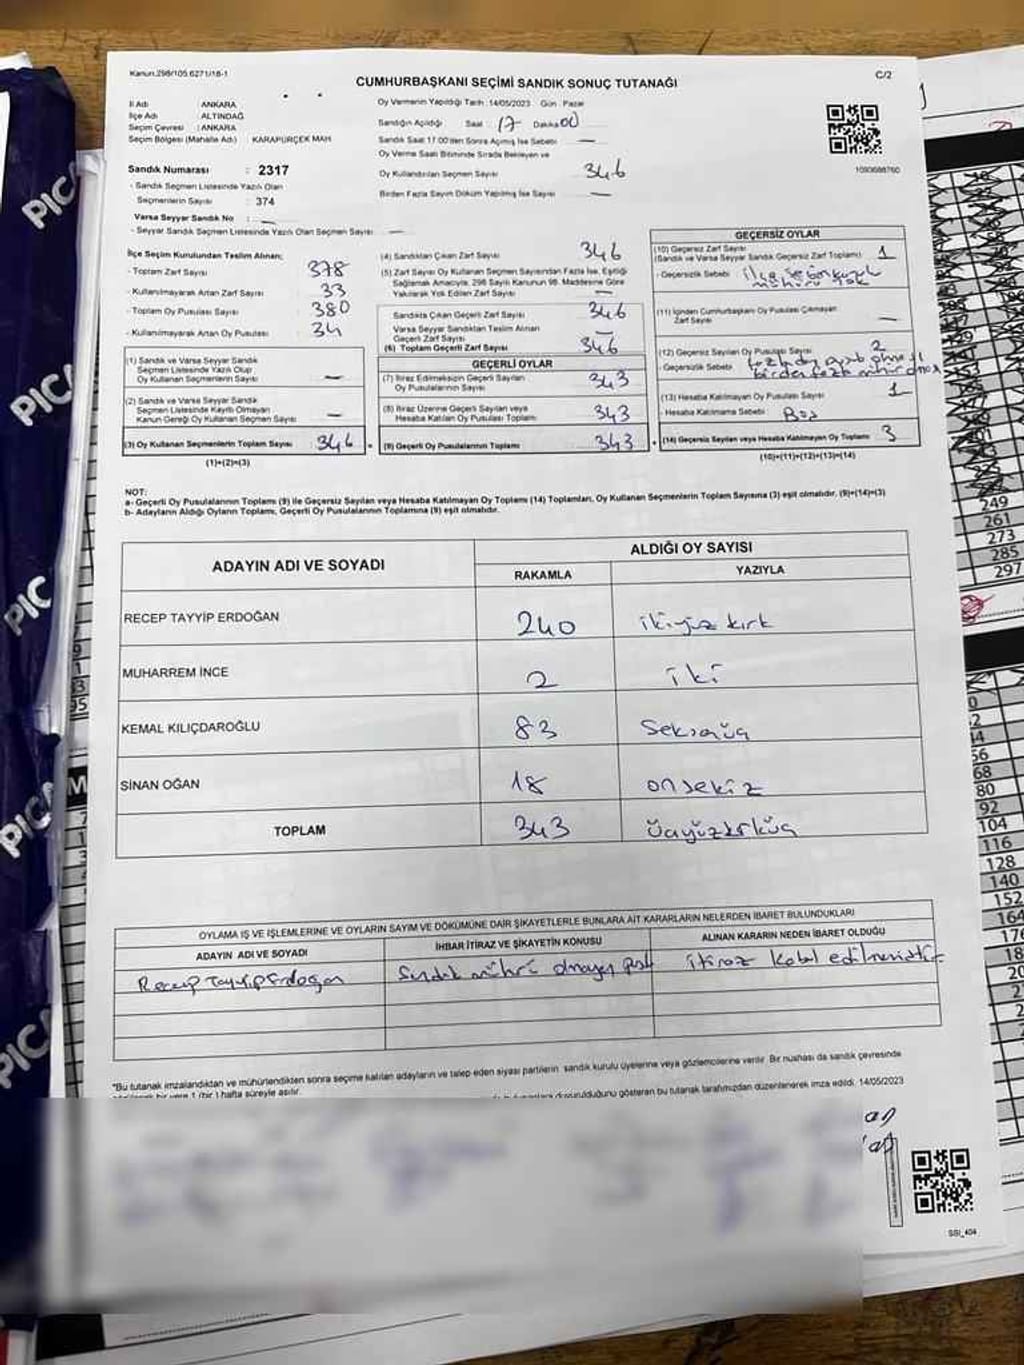 Kanun.298/105.6271/18-1
C/2
CUMHURBAŞKANI SEÇİMİ SANDIK SONUÇ TUTANAĞI
İl Adı ANKARA
İlçe Adı ALTINDAĞ
Seçim Çevresi : ANKARA
Seçim Bölgesi (Mahalle Adı) KARAPÜRÇEK MAH
Oy Vermenin Yapıldığı Tarih :14/05/2023 Gün : Pazar
Sandığın Açıldığı Saat : 17 Dakika 00
Sandık Saat 17.00'den Sonra Açılmış İse Sebebi —
Oy Verme Saati Bitiminde Sırada Bekleyen ve
Oy Kullandırılan Seçmen Sayısı 346
Birden Fazla Sayım Döküm Yapılmış İse Sayısı —
1093688760
Sandık Numarası : 2317
- Sandık Seçmen Listesinde Yazılı Olan
Seçmenlerin Sayısı : 374
Varsa Seyyar Sandık No : —
- Seyyar Sandık Seçmen Listesinde Yazılı Olan Seçmen Sayısı —
İlçe Seçim Kurulundan Teslim Alınan;
- Toplam Zarf Sayısı 378
- Kullanılmayarak Artan Zarf Sayısı 33
- Toplam Oy Pusulası Sayısı 380
- Kullanılmayarak Artan Oy Pusulası 34
(1) Sandık ve Varsa Seyyar Sandık
Seçmen Listesinde Yazılı Olup
Oy Kullanan Seçmenlerin Sayısı —
(2) Sandık ve Varsa Seyyar Sandık
Seçmen Listesinde Kayıtlı Olmayan
Kanun Gereği Oy Kullanan Seçmen Sayısı —
(3) Oy Kullanan Seçmenlerin Toplam Sayısı 346
(1)+(2)=(3)
(4) Sandıktan Çıkan Zarf Sayısı 346
(5) Zarf Sayısı Oy Kullanan Seçmen Sayısından Fazla İse, Eşitliği
Sağlamak Amacıyla, 298 Sayılı Kanunun 98. Maddesine Göre
Yakılarak Yok Edilen Zarf Sayısı —
Sandıkta Çıkan Geçerli Zarf Sayısı 346
Varsa Seyyar Sandıktan Teslim Alınan
Geçerli Zarf Sayısı —
(6) Toplam Geçerli Zarf Sayısı 346
GEÇERLİ OYLAR
(7) İtiraz Edilmeksizin Geçerli Sayılan
Oy Pusulalarının Sayısı 343
(8) İtiraz Üzerine Geçerli Sayılan veya
Hesaba Katılan Oy Pusulası Toplamı 343
(9) Geçerli Oy Pusulalarının Toplamı 343
GEÇERSİZ OYLAR
(10) Geçersiz Zarf Sayısı 1
(Sandık ve Varsa Seyyar Sandık Geçersiz Zarf Toplamı)
- Geçersizlik Sebebi ilçe seçim kurul
mührü yok
(11) İçinden Cumhurbaşkanı Oy Pusulası Çıkmayan
Zarf Sayısı —
(12) Geçersiz Sayılan Oy Pusulası Sayısı 2
- Geçersizlik Sebebi
(13) Hesaba Katılmayan Oy Pusulası Sayısı 1
- Hesaba Katılmama Sebebi Boş
(14) Geçersiz Sayılan veya Hesaba Katılmayan Oy Toplamı 3
(10)+(11)+(12)+(13)=(14)
NOT:
a- Geçerli Oy Pusulalarının Toplamı (9) ile Geçersiz Sayılan veya Hesaba Katılmayan Oy Toplamı (14) Toplamları, Oy Kullanan Seçmenlerin Toplam Sayısına (3) eşit olmalıdır. (9)+(14)=(3)
b- Adayların Aldığı Oyların Toplamı, Geçerli Oy Pusulalarının Toplamına (9) eşit olmalıdır.
ADAYIN ADI VE SOYADI ALDIĞI OY SAYISI
RAKAMLA YAZIYLA
RECEP TAYYİP ERDOĞAN 240 ikiyüz kırk
MUHARREM İNCE 2 iki
KEMAL KILIÇDAROĞLU 83 Seksenüç
SİNAN OĞAN 18 onsekiz
TOPLAM 343 üçyüzkırküç
OYLAMA İŞ VE İŞLEMLERİNE VE OYLARIN SAYIM VE DÖKÜMÜNE DAİR ŞİKAYETLERLE BUNLARA AİT KARARLARIN NELERDEN İBARET BULUNDUKLARI
ADAYIN ADI VE SOYADI İHBAR İTİRAZ VE ŞİKAYETİN KONUSU ALINAN KARARIN NEDEN İBARET OLDUĞU
Recep Tayyip Erdoğan Sandık mührü olmayan itiraz kabul edilmemiştir
*Bu tutanak imzalandıktan ve mühürlendikten sonra seçime katılan adayların ve talep eden siyasi partilerin sandık kurulu üyelerine veya gözlemcilerine verilir. Bir nüshası da sandık çevresinde
1 (bir) hafta süreyle asılır.
duyurulduğunu gösteren bu tutanak tarafımızdan düzenlenerek imza edildi. 14/05/2023
SSI_404
PIC
PIC
PICA
PICA
249
261
273
285
297
68
80
92
104
116
128
140
152
164